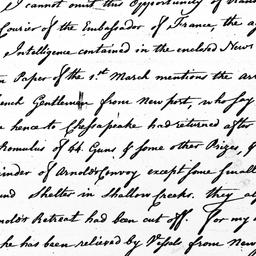 I cannot omit this Opportunity of
Courier of the Embassador of France, the
Intelligence contained in the enclosed News
Paper of the 1.st March mentions the
Gentlemen from Newport, who say
hence to Chessapeake had returned after
Romulus of 44 Guns & some other Prizes, &
inder of Arnolds Convoy except some small
und Shelter in Shallow Creeks. they
nold's Retreat had been cut off. For my
he has been relieved by Vessels from New